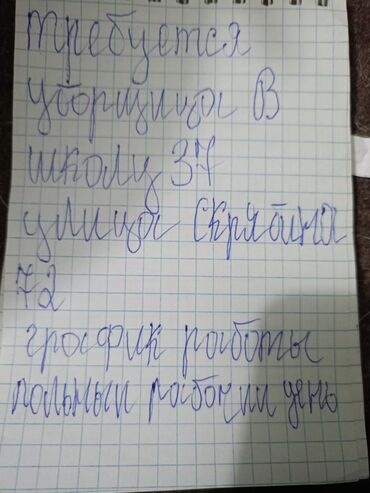 требуется
уборщица в
школу 37
улица Скрябина
72
график работы
полный рабочий день